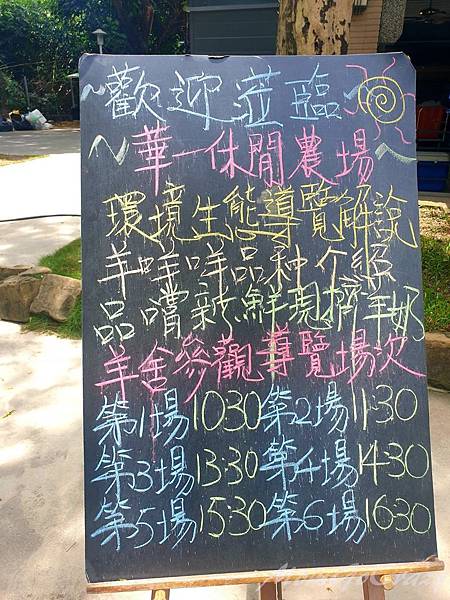 ~歡迎蒞臨~
~華一休閒農場~
環境生態導覽解說
羊咩咩品种介紹
品嚐新鮮現擠羊奶
羊舍參觀導覽場次
第1場10:30第2場11:30
第3場13:30第4場14:30
第5場15:30第6場16:30